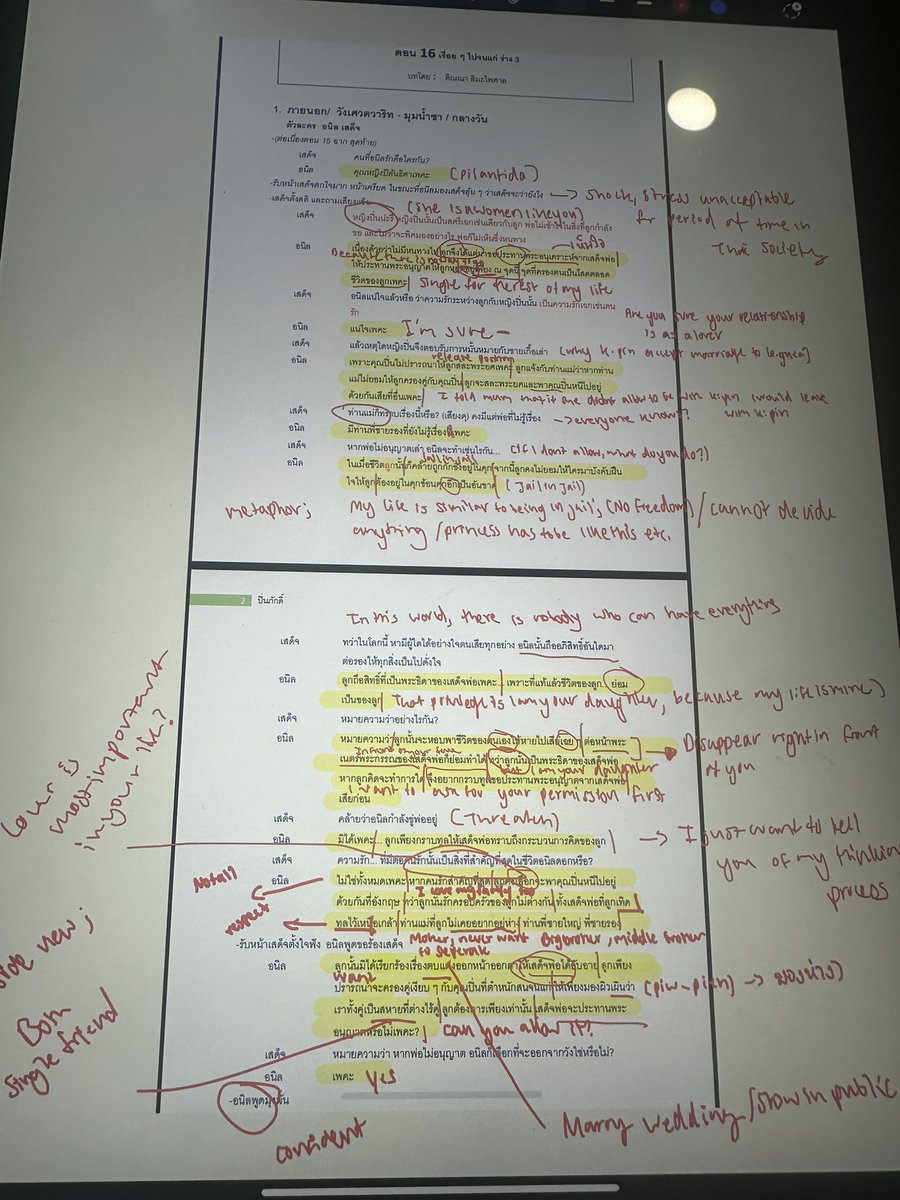 ตอน 16 เรื่อย ๆ ไปจนแก่ ร่าง 3
บทโดย :
1. ภายนอก/ วังเศวตวาริท - มุมน้ำชา / กลางวัน
ตัวละคร อนิล เสด็จ
-(ต่อเนื่องตอน 15 ฉาก สุดท้าย)
เสด็จ คนที่อนิลรักคือใครกัน?
อนิล คุณหญิงปิลันธิตาเพคะ (pilantida)
-รับหน้าเสด็จตกใจมาก หน้าเครียด ในขณะที่อนิลมองเสด็จลุ้น ๆ ว่าเสด็จจะว่ายังไง → Shock, stress unacceptable
for period of time in
Thai society
-เสด็จตั้งสติ และถามเสียงแข็ง
(she is a women like you)
เสด็จ หญิงปิ่นน่ะรึ หญิงปิ่นนั้นเป็นสตรีเฉกเช่นเดียวกับลูก พ่อไม่เข้าใจในสิ่งที่ลูกกำลัง
ขอ และไม่ว่าจะพิศมองอย่างไร พ่อก็ไม่เห็นซึ่งหนทาง
อนิล เนื่องด้วยว่าไม่มีหนทางไป ลูกจึงได้แต่มาขอประทานพระอนุเคราะห์จากเสด็จพ่อ
Because there is
ให้ประทานพระอนุญาตให้ลูก ณ จุดนี้ จุดที่ครองตนเป็นโสดตลอด
ชีวิตของลูกเพคะ single for the rest of my life
เสด็จ อนิลแน่ใจแล้วหรือ ว่าความรักระหว่างลูกกับหญิงปิ่นนั้น เป็นความรักเฉกเช่นคน
รัก
Are you sure your relationship
is as a lover
อนิล แน่ใจเพคะ I'm sure
เสด็จ แล้วเหตุใดหญิงปิ่นจึงตอบรับการหมั้นหมายกับชายเกื้อเล่า (why k.pin accept marriage to kguea)
release position
อนิล เพราะคุณปิ่นไม่ปรารถนาให้ลูกสละพระยศเพคะ ลูกแจ้งกับท่านแม่ว่าหากท่าน
แม่ไม่ยอมให้ลูกครองคู่กับคุณปิ่น ลูกจะสละพระยศและพาคุณปิ่นหนีไปอยู่
ด้วยกันเสียที่อื่นเพคะ I told mum that if she didnt allow to be with k.pin I would leave
with k.pin
เสด็จ ท่านแม่ก็ทราบเรื่องนี้หรือ? (เสียงดุ) คงมีแต่พ่อที่ไม่รู้เรื่อง → everyone knows?
อนิล มีท่านพี่ชายรองที่ยังไม่รู้เรื่องเพคะ
เสด็จ หากพ่อไม่อนุญาตเล่า อนิลจะทำเช่นไรกัน... (If I don't allow, what do you do?)
อนิล ในเมื่อชีวิตลูกนั้นก็คล้ายถูกกักขังอยู่ในคุก จากนี้ลูกคงไม่ยอมให้ใครมาบังคับฝืน
ใจให้ลูกต้องอยู่ในคุกซ้อนคุกอีกเป็นอันขาด (Jail in jail)
metaphor; My life is similar to being in jail; (No freedom) / cannot decide
anything / princess has to be like this etc.
2 ปิ่นภักดิ์
In this world, there is nobody who can have everything
เสด็จ ทว่าในโลกนี้ หามีผู้ใดได้อย่างใจตนเสียทุกอย่าง อนิลนั้นถืออภิสิทธิ์อันใดมา
ต่อรองให้ทุกสิ่งเป็นไปดั่งใจ
อนิล ลูกถือสิทธิ์ที่เป็นพระธิดาของเสด็จพ่อเพคะ เพราะที่แท้แล้วชีวิตของลูก ย่อม
เป็นของลูก That privilege is I am your daughter, because my life is mine)
เสด็จ หมายความว่าอย่างไรกัน?
อนิล หมายความว่าลูกนั้นจะหอบพาชีวิตของตนเองให้หายไปเสียเฉย ต่อหน้าพระ
Disappear right in front
of you
เนตรพระกรรณของเสด็จพ่อก็ย่อมทำได้ ทว่าลูกนั้นเป็นพระธิดาของเสด็จพ่อ
but I am your daughter
หากลูกคิดจะทำการใด จึงอยากกราบทูลขอประทานพระอนุญาตจากเสด็จพ่อ
เสียก่อน I want to ask for your permission first
เสด็จ คล้ายว่าอนิลกำลังขู่พ่ออยู่ (Threaten)
อนิล มิได้เพคะ... ลูกเพียงกราบทูลให้เสด็จพ่อทราบถึงกระบวนการคิดของลูก → I just want to tell
you of my thinking
process
Love is
most important
in your life?
เสด็จ ความรัก... ที่มีต่อคนรักนั้นเป็นสิ่งที่สำคัญที่สุดในชีวิตอนิลดอกหรือ?
Not all
อนิล ไม่ใช่ทั้งหมดเพคะ หากคนรักสำคัญที่สุด ลูกคงเลือกจะพาคุณปิ่นหนีไปอยู่
ด้วยกันที่อังกฤษ ว่าลูกนั้นรักครอบครัวของลูกไม่ต่างกัน ทั้งเสด็จพ่อที่ลูกเทิด
respect
ทูลไว้เหนือเกล้า ท่านแม่ที่ลูกไม่เคยอยากอยู่ห่าง ท่านพี่ชายใหญ่ พี่ชายรอง
Mother, never want to seperate Big brother, middle brother
-รับหน้าเสด็จตั้งใจฟัง อนิลพูดขอร้องเสด็จ
อนิล ลูกนั้นมิได้เรียกร้องเรื่องตบแต่งออกหน้าออกตาให้เสด็จพ่อได้อับอาย ลูกเพียง
want
ปรารถนาจะครองคู่เงียบ ๆ กับคุณปิ่นที่ตำหนักสนจนแก่ ให้เพียงมองผิวเผินว่า (piw-pern) → มองห่าง)
เราทั้งคู่เป็นสหายที่ต่างไร้คู่ ลูกต้องการเพียงเท่านั้น เสด็จพ่อจะประทานพระ
อนุญาตหรือไม่เพคะ? can you allow it?
Both
single friend
เสด็จ หมายความว่า หากพ่อไม่อนุญาต อนิลก็เลือกที่จะออกจากวังใช่หรือไม่?
อนิล เพคะ Yes
-อนิลพูดมุ่งมั่น
confident
Marry wedding/show in public